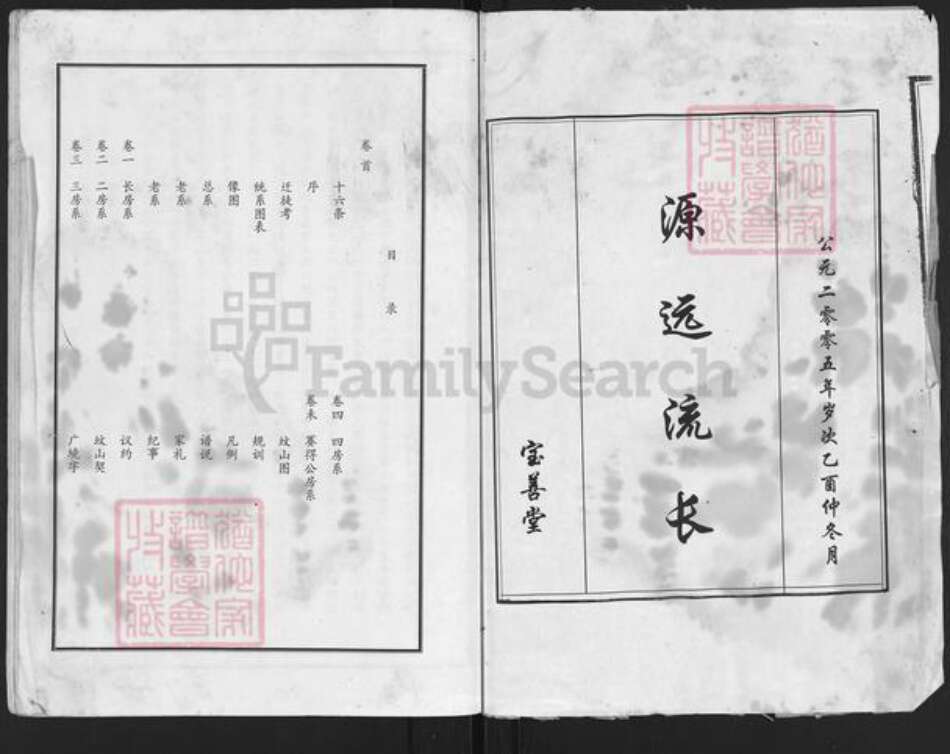 公元二零零五年岁次乙酉仲冬月
源远流长
宝善堂
目录
卷首
十六条
序
迁徒考
统系图表
像图
总系
老系
老系
卷一 长房系
卷二 二房系
卷三 三房系
卷四 四房系
卷末 赛得公房系
坟山图
规训
凡例
谱说
家礼
纪事
议约
坟山契
FamilySearch